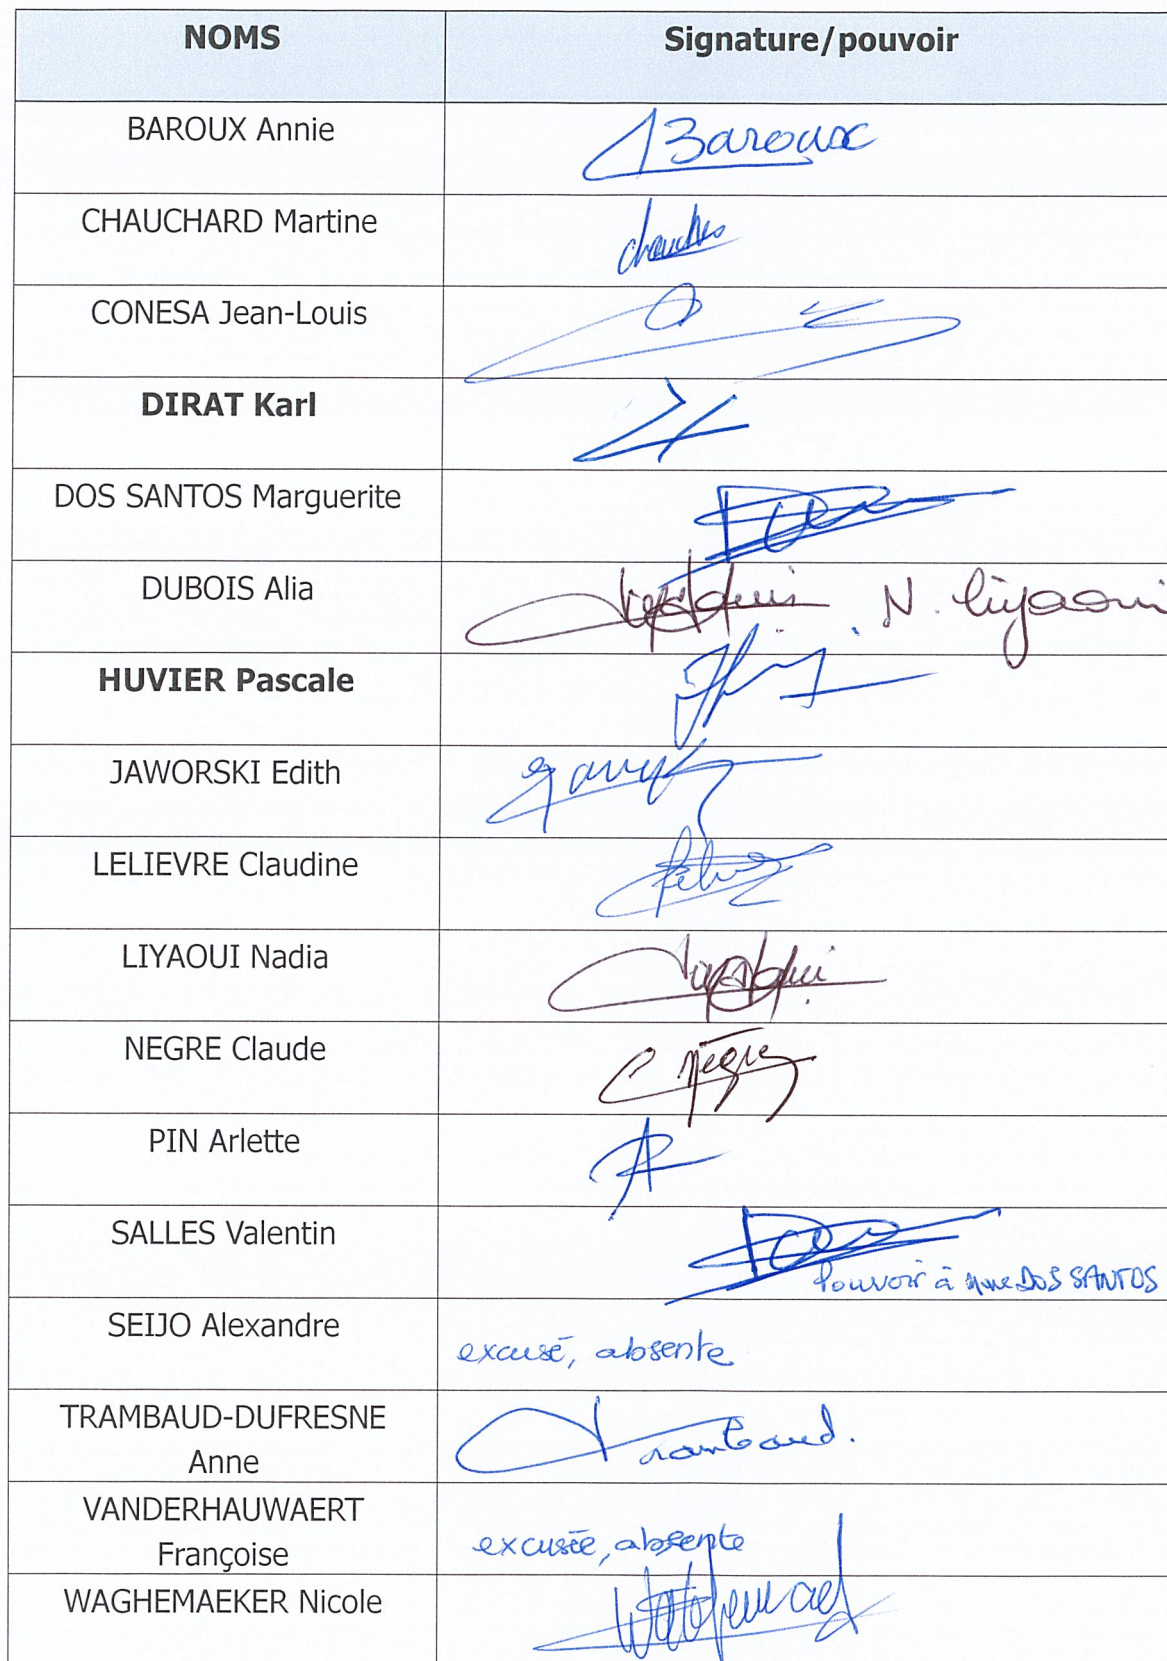 NOMS
Signature/pouvoir
BAROUX Annie
Baroux
CHAUCHARD Martine
CONESA Jean-Louis
DIRAT Karl
DOS SANTOS Marguerite
DUBOIS Alia
N. Liyaoui
HUVIER Pascale
JAWORSKI Edith
LELIEVRE Claudine
LIYAOUI Nadia
NEGRE Claude
C Nègre
PIN Arlette
SALLES Valentin
Pouvoir à Mme DOS SANTOS
SEIJO Alexandre
excusé, absente
TRAMBAUD-DUFRESNE
Anne
Trambaud.
VANDERHAUWAERT
Françoise
excusée, absente
WAGHEMAEKER Nicole